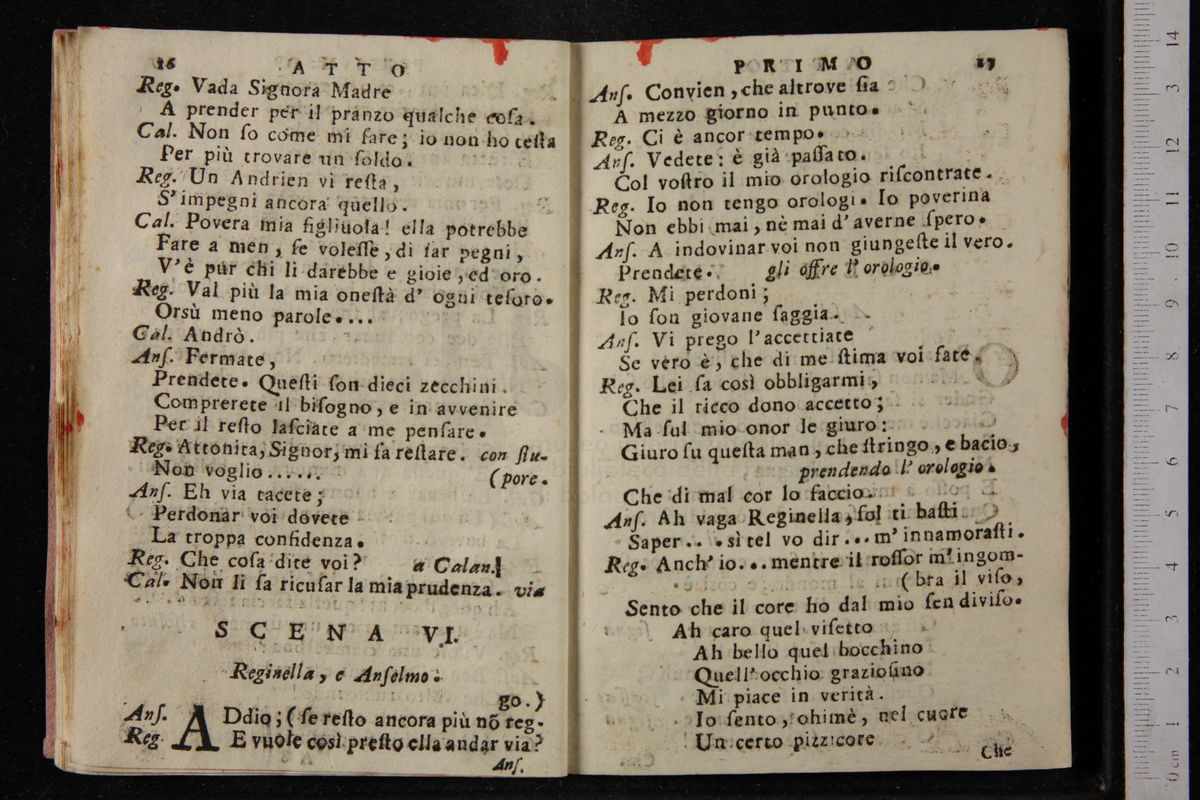 16 ATTO
Reg. Vada Signora Madre
A prender per il pranzo qualche cosa.
Cal. Non ſo come mi fare; io non ho teſta
Per più trovare un ſoldo.
Reg. Un Andrien vi reſta,
S'impegni ancora quello.
Cal. Povera mia figliuola! ella potrebbe
Fare a men, ſe voleſſe, di far pegni,
V'è pur chi li darebbe e gioie, ed oro.
Reg. Val più la mia oneſtà d' ogni teſoro.
Orsù meno parole....
Cal. Andrò.
Anſ. Fermate,
Prendete. Queſti ſon dieci zecchini.
Comprerete il biſogno, e in avvenire
Per il reſto laſciate a me penſare.
Reg. Attonita, Signor, mi fa reſtare. con ſtu-
Non voglio...... (pore.
Anſ. Eh via tacete;
Perdonar voi dovete
La troppa confidenza.
Reg. Che coſa dite voi? a Calan.
Cal. Non li ſa ricuſar la mia prudenza. via
SCENA VI.
Reginella, e Anſelmo.
go.)
Anſ. ADdio; (ſe reſto ancora più nõ reg-
Reg. E vuole così preſto ella andar via?
Anſ.
PRIMO 17
Anſ. Convien, che altrove ſia
A mezzo giorno in punto.
Reg. Ci è ancor tempo.
Anſ. Vedete: è già paſſato.
Col voſtro il mio orologio riſcontrate.
Reg. Io non tengo orologi. Io poverina
Non ebbi mai, nè mai d'averne ſpero.
Anſ. A indovinar voi non giungeſte il vero.
Prendete. gli offre l' orologio.
Reg. Mi perdoni;
Io ſon giovane ſaggia.
Anſ. Vi prego l'accettiate
Se vero è, che di me ſtima voi fate.
Reg. Lei ſa così obbligarmi,
Che il ricco dono accetto;
Ma ſul mio onor le giuro:
Giuro ſu queſta man, che ſtringo, e bacio,
prendendo l' orologio.
Che di mal cor lo faccio.
Anſ. Ah vaga Reginella, ſol ti baſti
Saper... sì tel vo dir... m'innamoraſti.
Reg. Anch' io... mentre il roſſor m'ingom-
(bra il viſo,
Sento che il core ho dal mio ſen diviſo.
Ah caro quel viſetto
Ah bello quel bocchino
Quell' occhio grazioſino
Mi piace in verità.
Io ſento, ohimè, nel cuore
Un certo pizzicore
Che